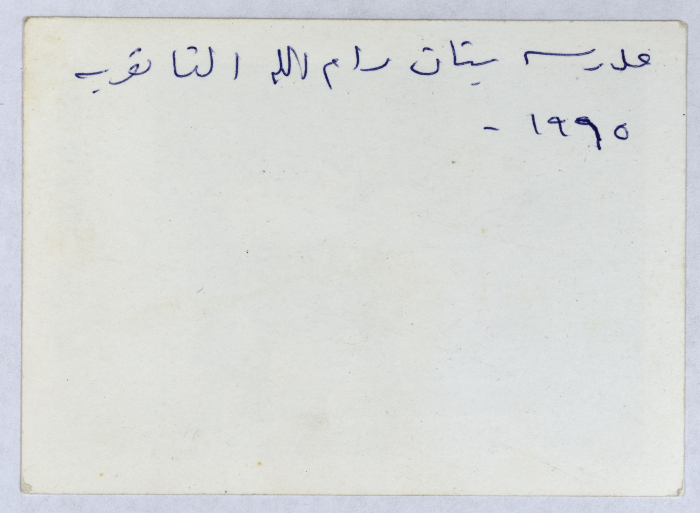 مدرسه بنات رام الله الثانويه
١٩٩٥ -